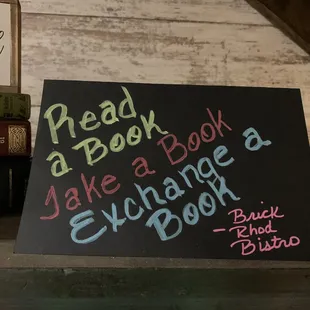 Read
a Book
Take a Book
Exchange a
Book
- Brick
Rhod
Bistro